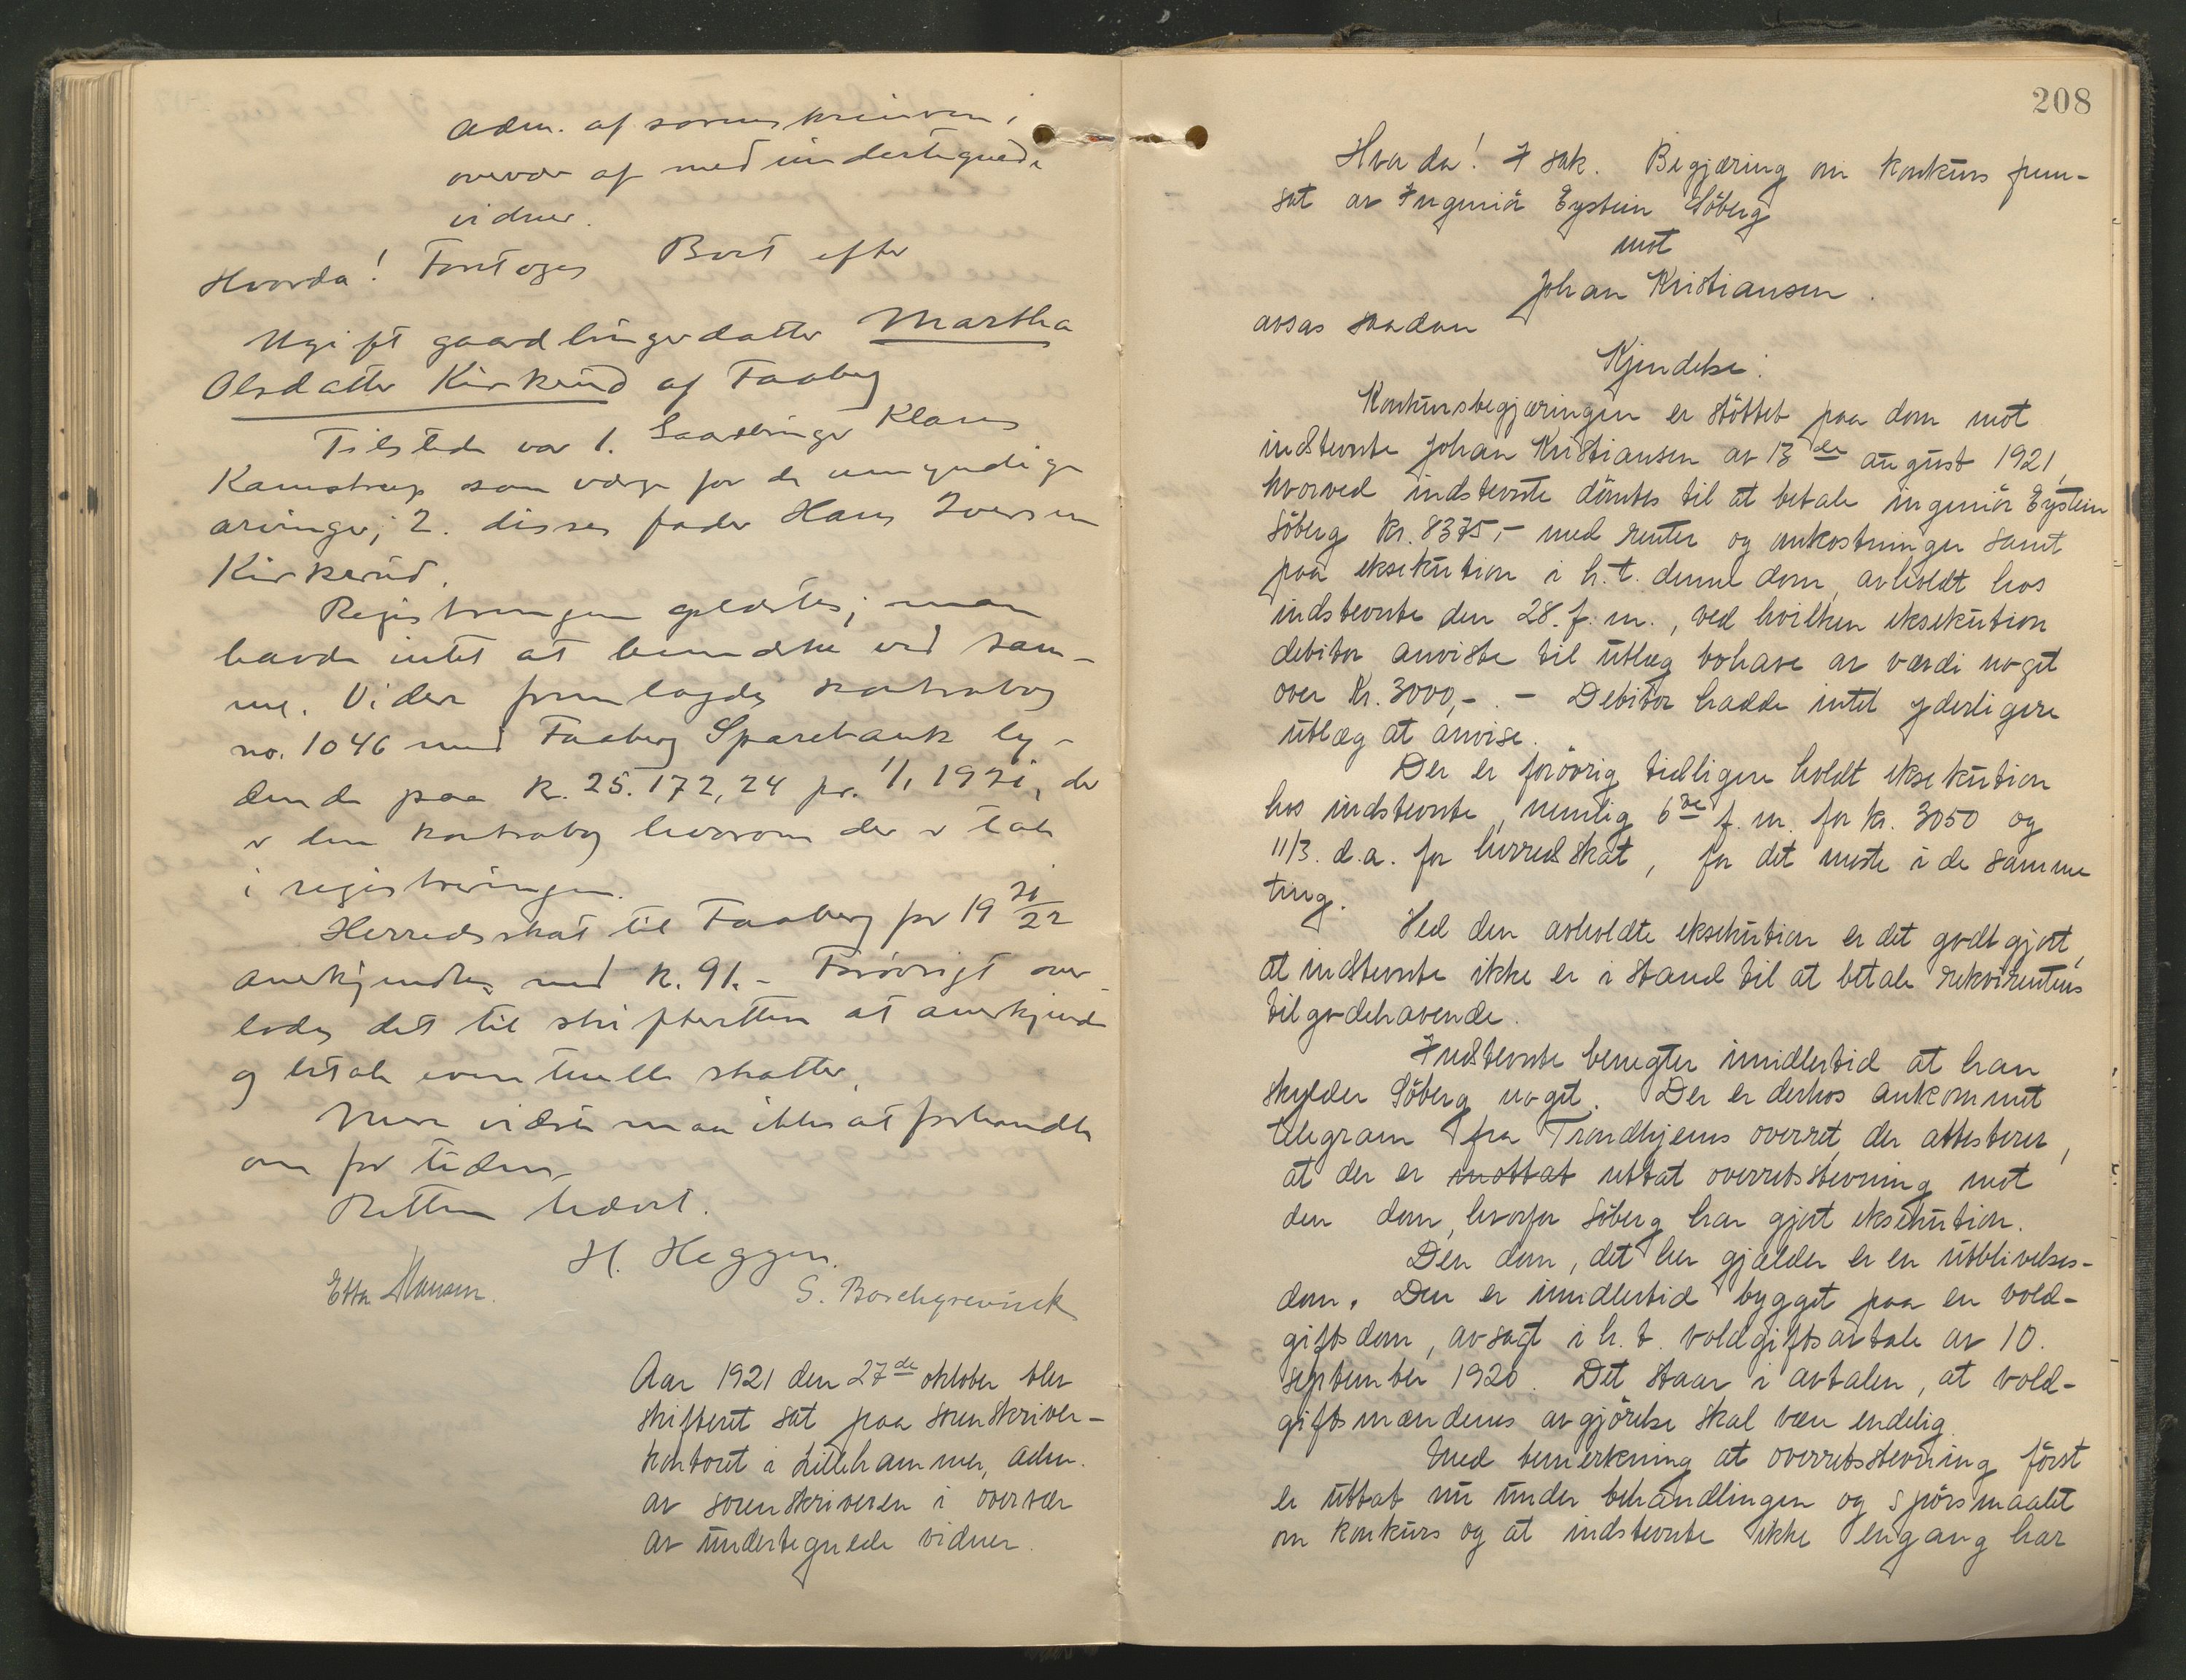 adm. af sorenskriveren i
overvær af medundertegnede
vidner.
Hvorda! Foretoges Boet efter
Ugift gaardbrugerdatter Martha
Olsdatter Kirkerud af Faaberg
Tilstede var 1. Gaardbruger Klaus
Kamstrup som værge for de umyndige
arvinger; 2. disses fader Hans Iversen
Kirkerud.
Registreringen oplæstes; man
havde intet at bemærke ved sam-
me. Videre fremlagdes kontrabog
no. 1046 med Faaberg Sparebank ly-
dende paa k. 25.172,24 pr. 1/1 1921, der
er den kontrabog hvorom der er tale
i registreringen.
Herredsskat til Faaberg for 19 21/22
anerkjendtes med k. 91.- Forøvrigt over-
lodes det til skifteretten at anerkjende
og betale eventuelle skatter.
Mere vidste man ikke at forhandle
om for tiden.
Retten hævet.
H. Heggen.
Etta Hansen. S. Borchgrevinck
Aar 1921 den 27de oktober blev
skifteret sat paa sorenskriver-
kontoret i Lillehammer, adm.
av sorenskriveren i overvær
av undertegnede vidner.
208
Hvada! I sak. Begjæring om konkurs frem-
sat av Ingeniör Eystein Söberg
mot
Johan Kristiansen.
avsas saadan
Kjendelse:
Konkursbegjæringen er stöttet paa dom mot
indstevnte Johan Kristiansen av 13de august 1921,
hvorved indstevnte dömtes til at betale ingeniör Eystein
Söberg kr. 8375,- med renter og omkostninger samt
paa eksekution i h.t. denne dom, avholdt hos
indstevnte den 28. f. m., ved hvilken eksekution
debitor anviste til utlæg bohave av værdi noget
over kr. 3000,-. - Debitor hadde intet yderligere
utlæg at anvise.
Der er forövrig tidligere holdt eksekution
hos indstevnte, nemlig 6te f. m. for kr. 3050 og
11/3. d.a. for herredsskat, for det meste i de samme
ting.
Ved den avholdte eksekution er det godtgjort,
at indstevnte ikke er i stand til at betale rekvirentens
tilgodehavende.
Indstevnte benegter imidlertid at han
skylder Söberg noget. Der er derhos ankommet
telegram fra Trondhjems overret, der attesterer,
at der er mottat uttat overretsstevning mot
den dom, hvorfor Söberg har gjort eksekution.
Den dom, det her gjælder er en utblivelses-
dom. Den er imidlertid bygget paa en vold-
giftsdom, avsagt i h. t. voldgiftsavtale av 10.
september 1920. Det staar i avtalen, at vold-
giftsmændenes avgjörelse skal være endelig.
Med bemerkning at overretsstevning först
er uttat nu under behandlingen og spörsmaalet
om konkurs og at indstevnte ikke engang har